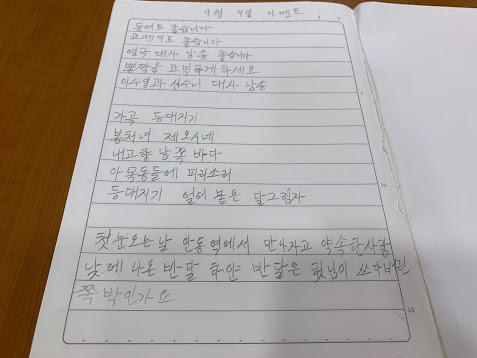 9월 9일 이벤트
동여도 좋습니다
코메디도 좋습니다
연극 대사 낭송 좋습니다
뽕짝을 코믹하게 하세요
이수일과 심수니 대사 낭송
가곡 등대지기
봄처녀 제오시네
내고향 남쪽 바다
아 목동들에 피리소리
등대지기 얼어 붙은 달그림자
첫눈오는날 안동역에서 만나자고 약속한사람
낮에 나온 반달 하얀 반달은 햇님이 쓰다버린
쪽박인가요
5
10
15